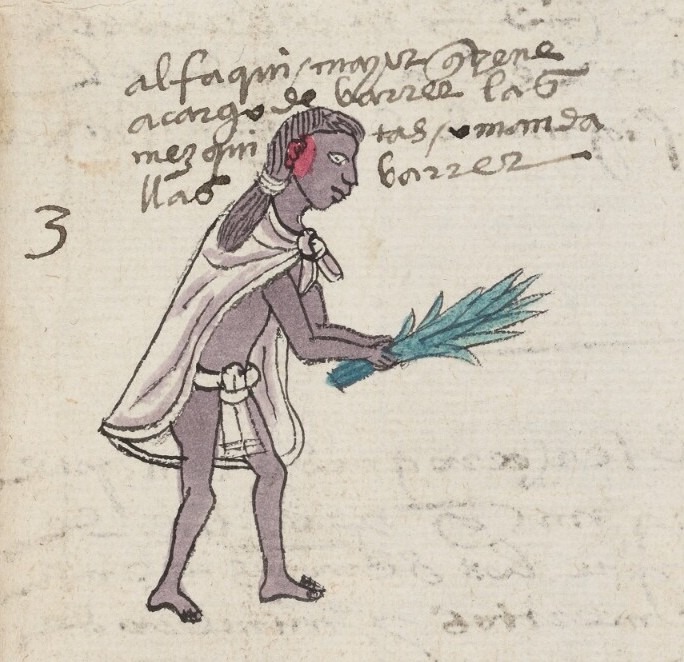 alfaqui / mayor q̃ tiene
acargo de barrer las
mezqui tas / o manda
llas barrer
3